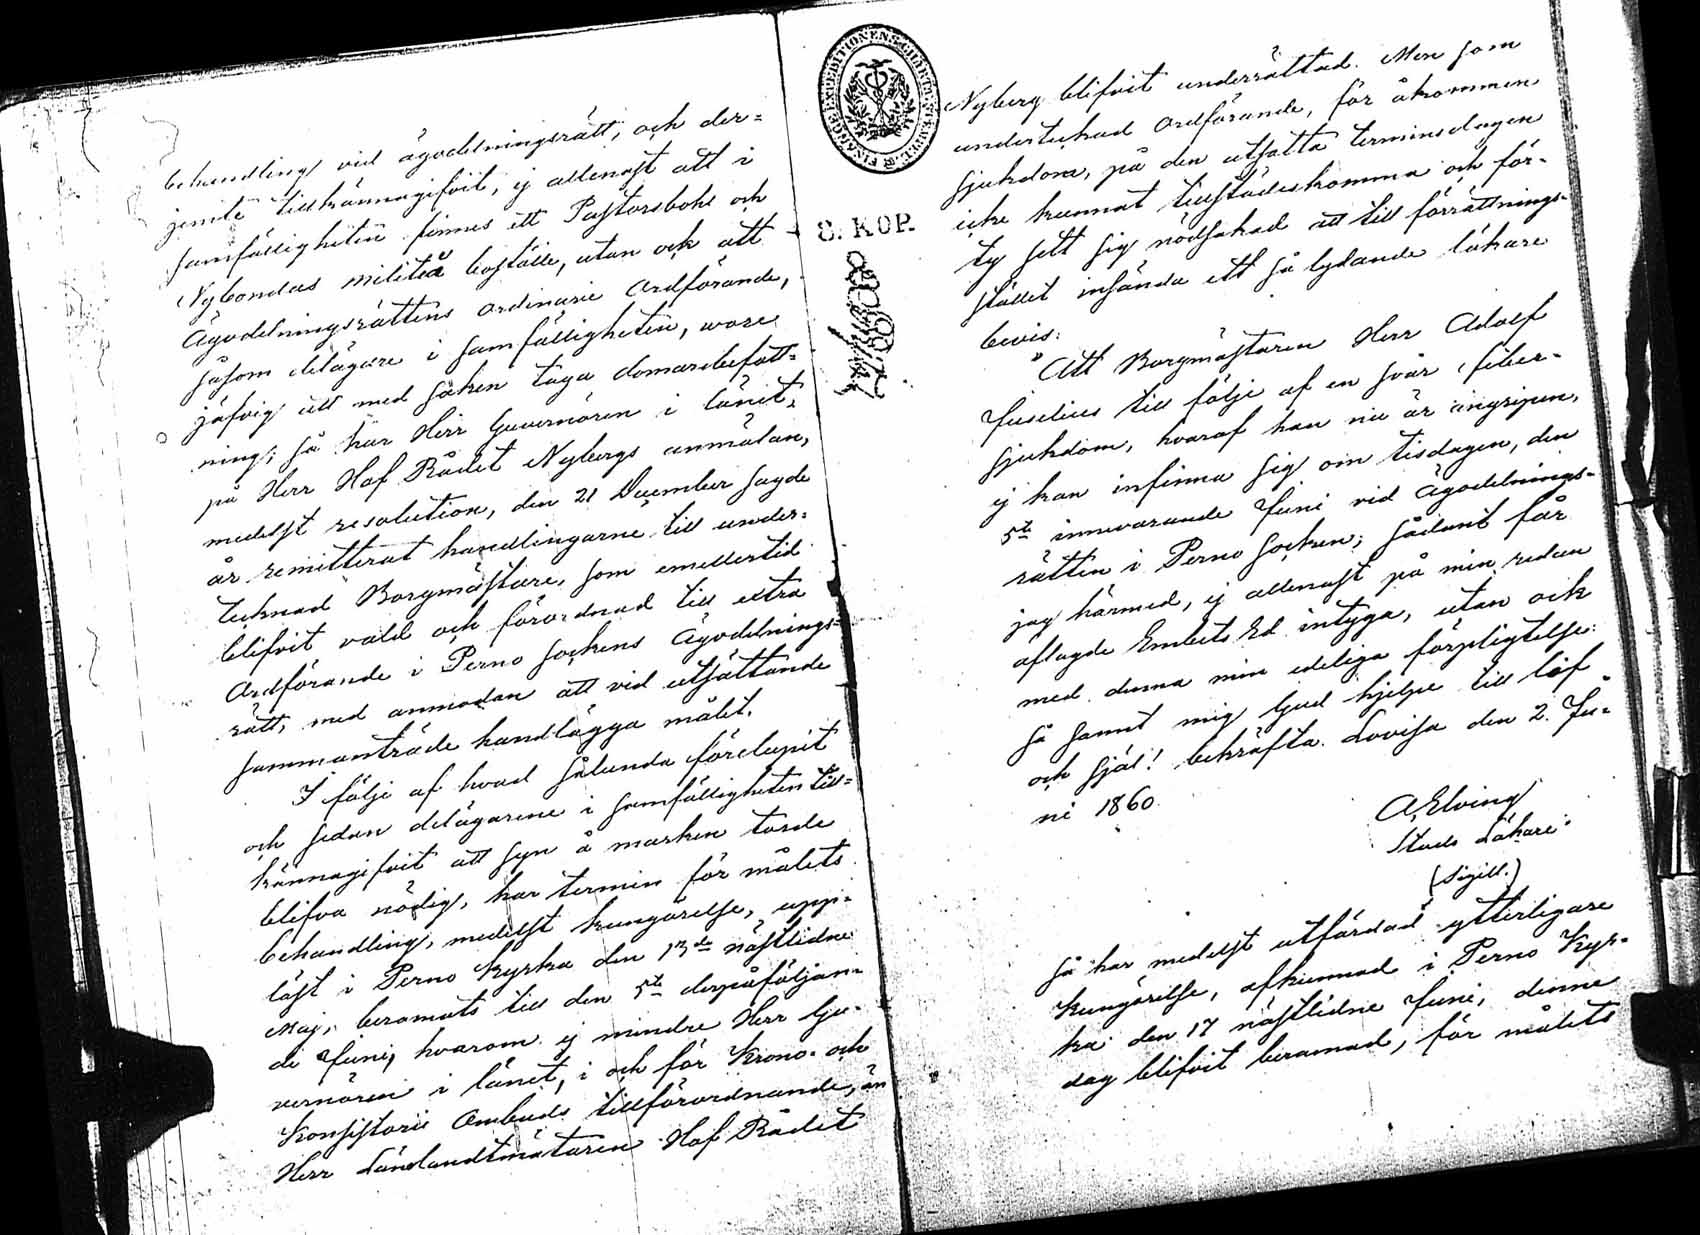 behandling vid ägodelningsrätt, och der=
jemte tillkännagifvit, ej allenast att i
samfälligheten finnes ett Pastorsbohl och
Nybondas militiæ boställe, utan ock att
Ägodelningsrättens ordinarie Ordförande,
såsom delägare i samfälligheten, wore
jäfvig att med saken taga domarebefatt=
ning; så har Herr Guvernören i länet,
på Herr Hof Rådet Nybergs anmälan,
medelst resolution, den 21 December sagde
år remitterat handlingarne till under=
tecknad Borgmästare, som emellertid
blifvit vald och förordnad till extra
Ordförande i Perno sockens Ägodelnings=
rätt, med anmodan att vid utsättande
sammanträde handlägga målet.
I följe af hvad sålunda förelupit
och sedan delägarene i samfälligheten till=
kännagifvit att syn å marken torde
blifva nödig, har termin för målets
behandling, medelst kungörelse, upp=
läst i Perno kyrka den 13de nästlidne
Maj, beramats till den 5te derpåföljan=
de Juni, hvarom ej mindre Herr Gu=
vernören i länet, i och för Krono- och
Konsistorii Ombuds tillförordnande, än
Herr Länelandtmätaren Hof Rådet
FINANCE EXPEDITIONENS CHARTÆ STEMPEL
8. KOP.
Nyberg blifvit underrättad. Men som
undertecknad Ordförande, för åkommen
sjukdom, på den utsatta terminsdagen
icke kunnat tillstädeskomma och för=
ty sett sig nödsakad att till förrättnings=
stället insända ett så lydande läkare
bevis:
"Att Borgmästaren Herr Adolf
Juselius till följe af en svår feber=
sjukdom, hvaraf han nu är angripen,
ej kan infinna sig om tisdagen, den
5te innevarande Juni vid Ägodelnings=
rätten i Perno socken; sådant får
jag härmed, ej allenast på min redan
aflagde Embets Ed intyga, utan ock
med denna min edeliga förpligtelse:
så sannt mig Gud hjelpe till lif
och själ! bekräfta. Lovisa den 2. Ju=
ni 1860.
A, Elving
Stads Läkare"
(Sigill.)
så har medelst utfärdad ytterligare
kungörelse, afkunnad i Perno Kyr=
ka den 17 nästlidne Juni, denne
dag blifvit beramad, för målets